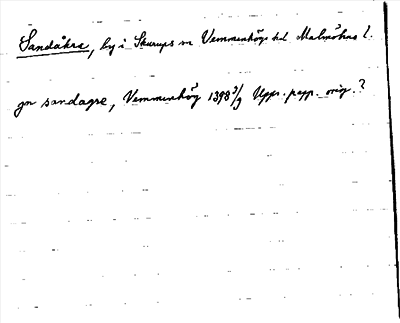 Sandåkra, by i Skurups sn Vemmenhögs hd Malmöhus l.
gn sandagre, Vemmenhög 1398 3/9 Upps. papp. orig.?